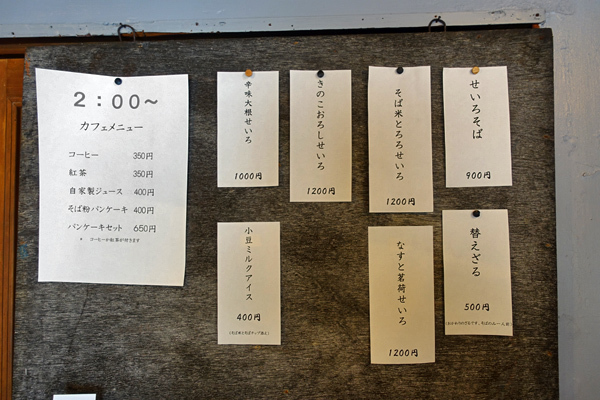 2:00～
カフェメニュー
コーヒー 350円
紅茶 350円
自家製ジュース 400円
そば粉パンケーキ 400円
パンケーキセット 650円
* コーヒーか紅茶が付きます
せいろそば
900円
そば米とろろせいろ
1200円
きのこおろしせいろ
1200円
辛味大根せいろ
1000円
替えざる
500円
なすと茗荷せいろ
1200円
小豆ミルクアイス
400円